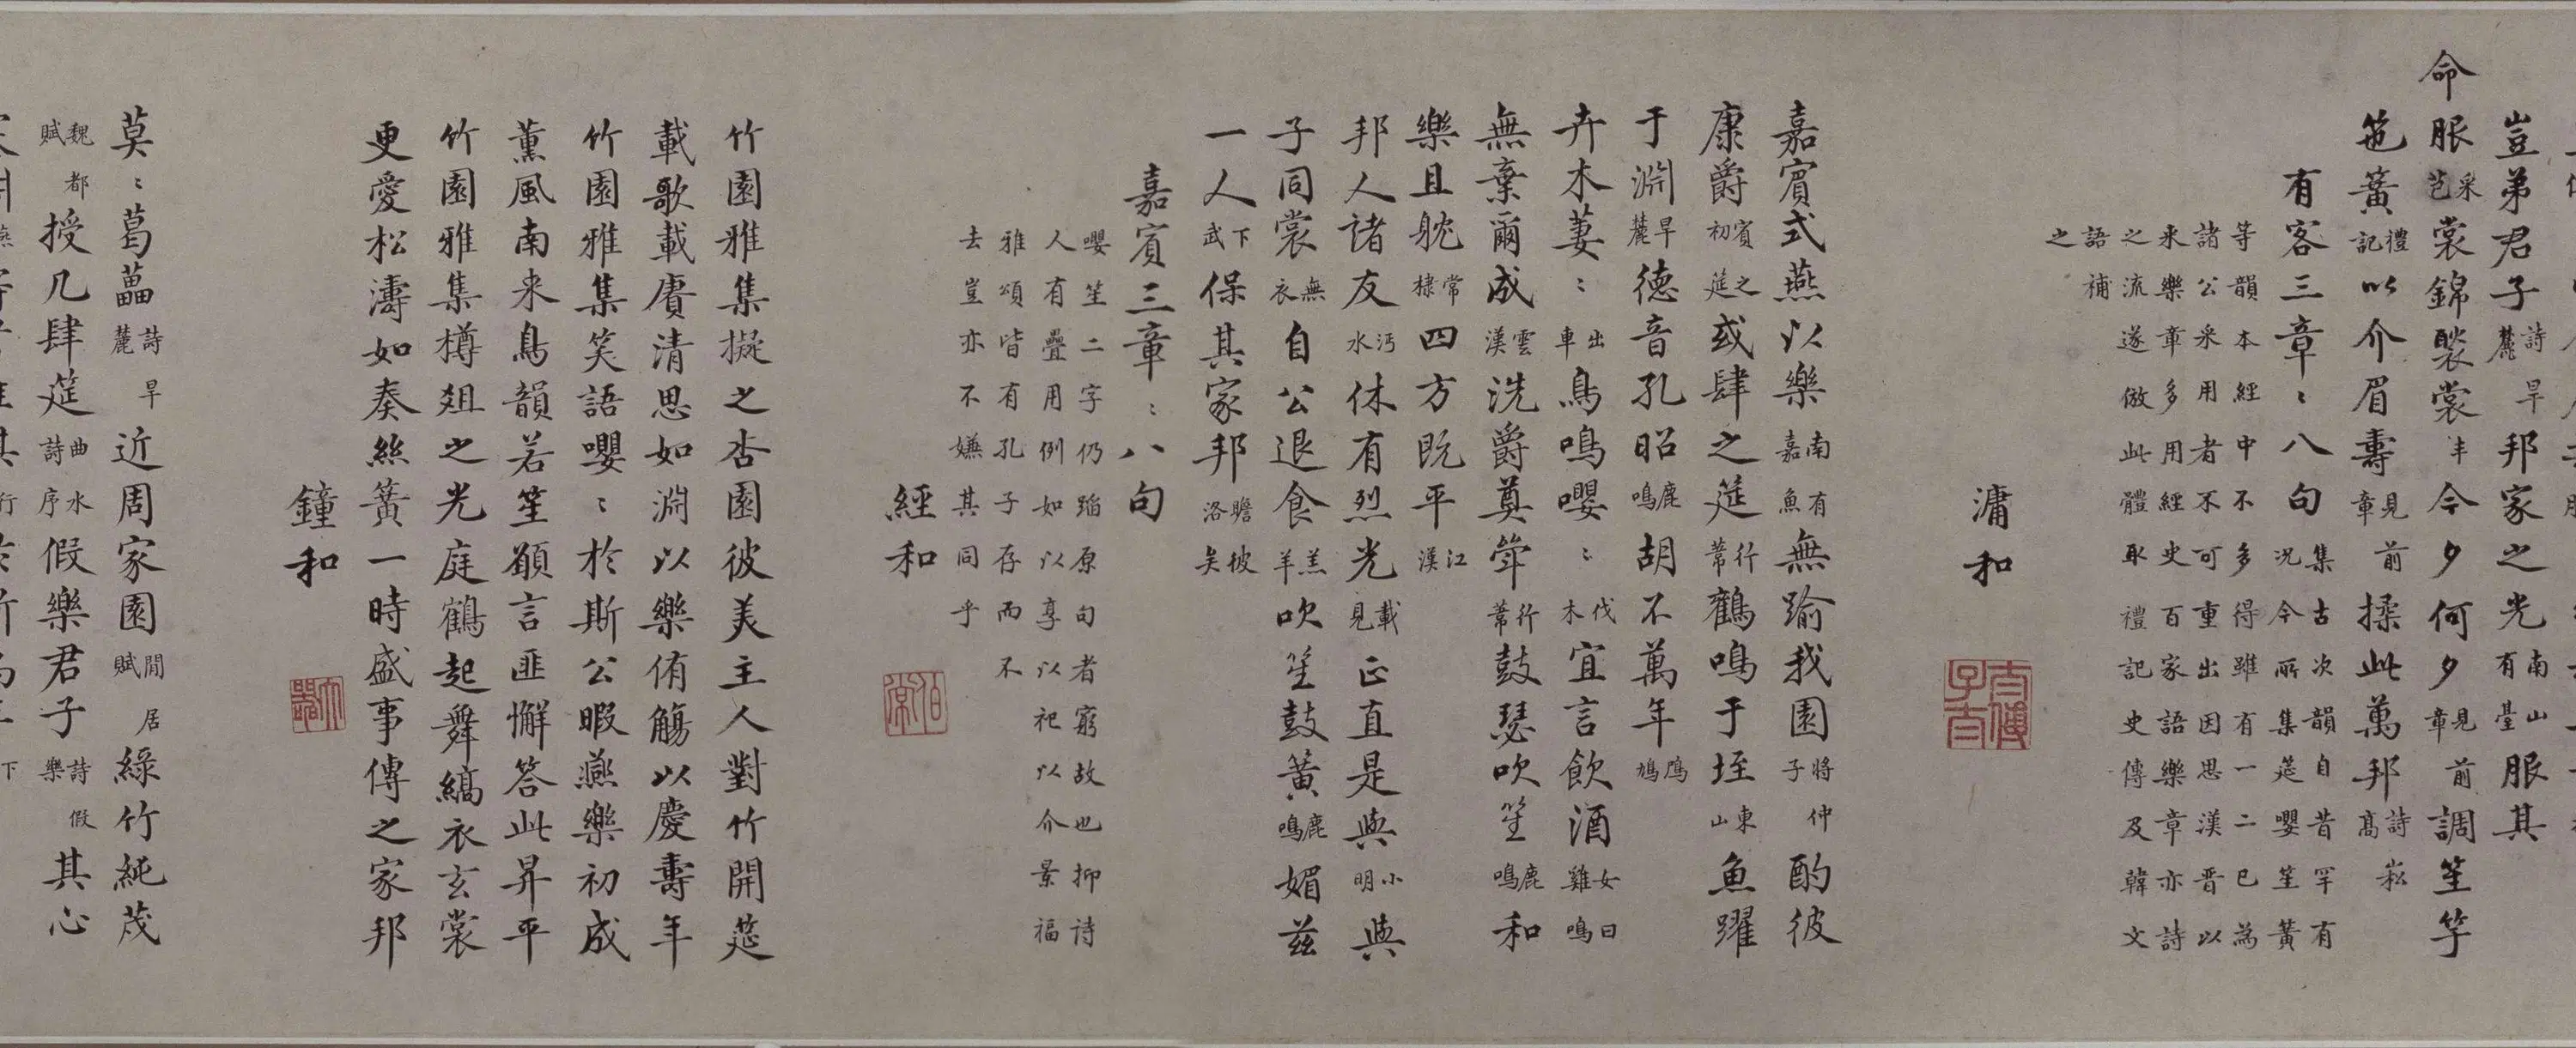 豈弟君子詩旱麓邦家之光南山有臺服其
命服采芑裳錦褧裳丰今夕何夕見前章調笙竽
笆簧禮記以介眉壽見前章揉此萬邦詩崧高
有客三章〻八句集古次韻自昔罕有況今所集筵嚶笙簧
等韻本經中不多得雖有一二已為
諸公采用者不可重出因思漢晋以
来樂章多用經史百家語樂章亦詩
之流遂倣此體取禮記史傳及韓文
語補
之
溏和
嘉賓式燕以樂南有嘉魚無踰我園將仲子酌彼
康爵賓之初筵或肆之筵行葦鶴鳴于垤東山魚躍
于淵旱麓德音孔昭鹿鳴胡不萬年鳲鳩
卉木萋〻出車鳥鳴嚶〻伐木宜言飲酒女曰雞鳴
無棄爾成雲漢洗爵奠斝行葦鼓瑟吹笙鹿鳴和
樂且躭常棣四方既平江漢
邦人諸友沔水休有烈光載見正直是與小明與
子同裳無衣自公退食羔羊吹笙鼓簧鹿鳴媚兹
一人下武保其家邦瞻彼洛矣
嘉賓三章〻八句
嚶笙二字仍蹈原句者窮故也抑詩
人有疊用例如以享以祀以介景福
雅頌皆有孔子存而不
去豈亦不嫌其同乎
經和
竹園雅集擬之杏園彼美主人對竹開筵
載歌載賡清思如淵以樂侑觴以慶壽年
竹園雅集笑語嚶〻於斯公暇燕樂初成
薰風南来鳥韻若笙顧言匪懈答此昇平
竹園雅集樽俎之光庭鶴起舞縞衣玄裳
更愛松濤如奏絲簧一時盛事傳之家邦
鐘和
莫〻葛藟詩旱麓近周家園閒居賦綠竹純茂
魏都賦授几肆筵曲水詩序假樂君子詩假樂其心